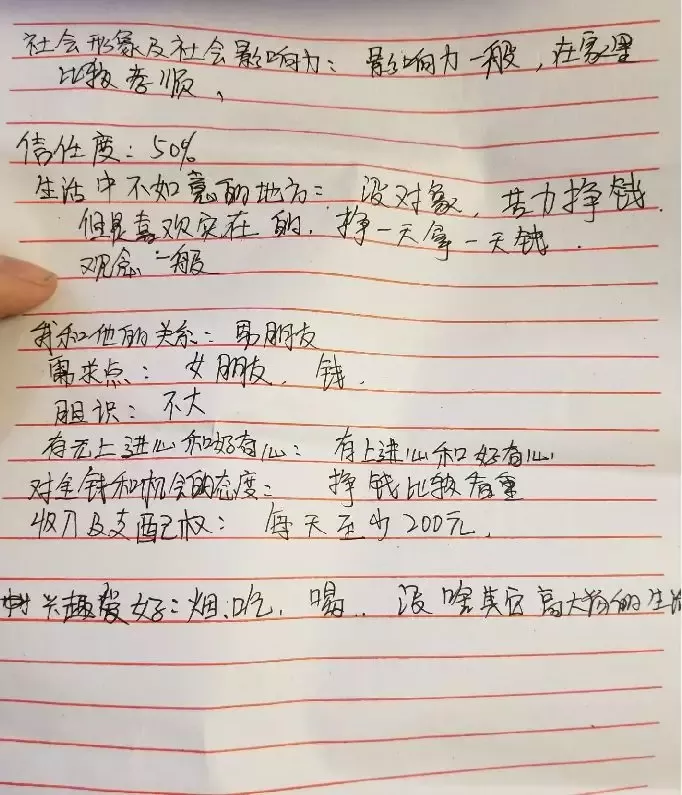 社会形象及社会影响力：影响力一般，在家里
比较孝顺、
信任度：50%
生活中不如意的地方：没对象，苦力挣钱.
但是喜欢实在的，挣一天拿一天钱.
观念一般
我和他的关系：男朋友
需求点：女朋友、钱.
胆识：不大
有无上进心和好奇心：有上进心和好奇心
对金钱和机会的态度：挣钱比较看重
收入及支配权：每天至少200元.
兴趣爱好：烟、吃、喝.. 没啥其它高大尚的生活